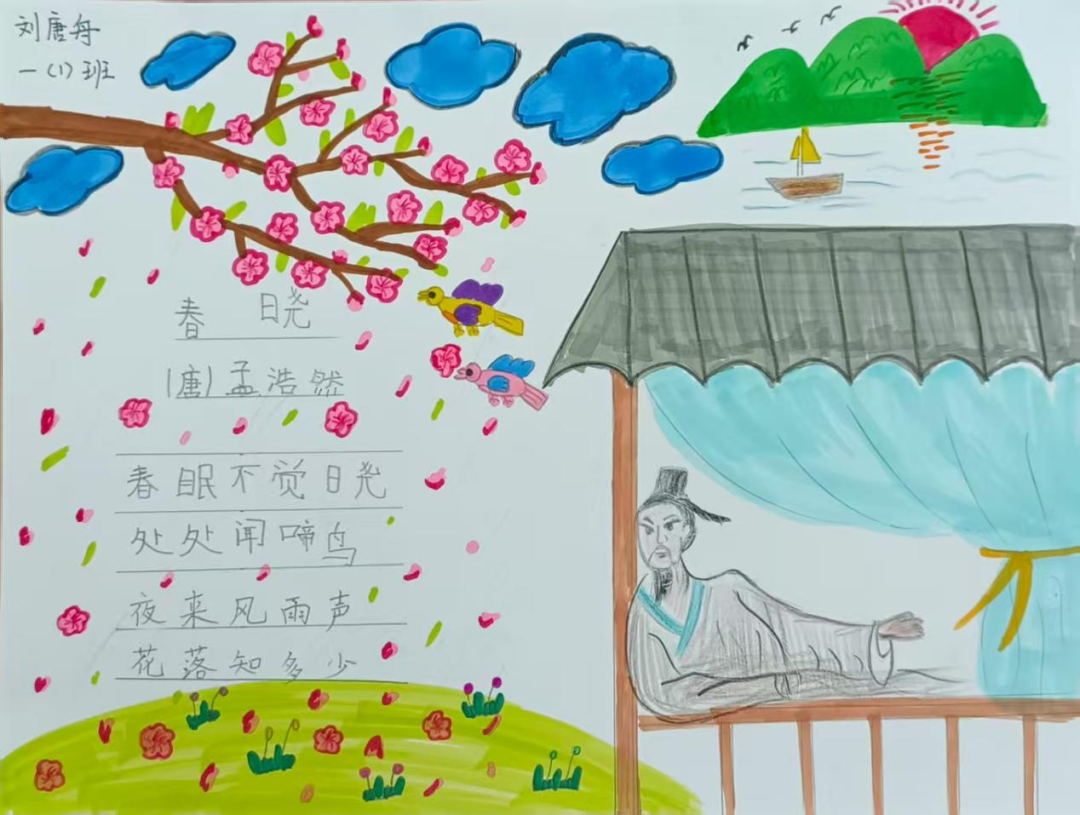 刘唐舟
一（1）班
春 晓
（唐）孟浩然
春眠不觉晓
处处闻啼鸟
夜来风雨声
花落知多少